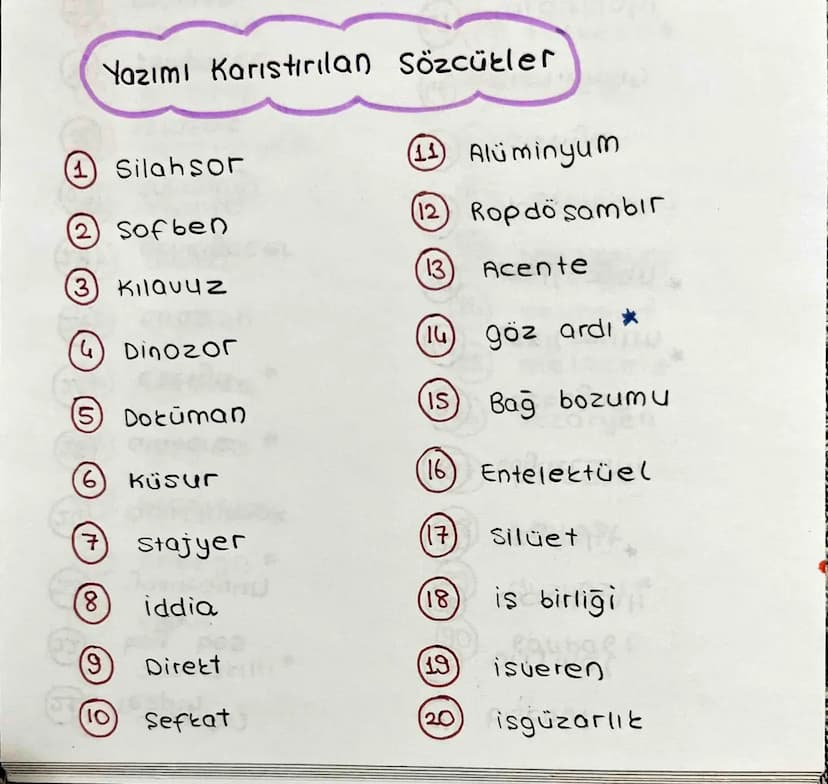 Yazımı Karıstırılan Sözcükler
1 Silahsor
2 Sofben
3 Kılavuz
4 Dinozor
5 Doküman
6 Küsur
7 Stajyer
8 iddia
9 Direkt
10 Sefkat
11 Alüminyum
12 Ropdösambır
13 Acente
14 göz ardı *
15 Bağ bozumu
16 Entelektüel
17 Silüet
18 is birliği
19 isveren
20 isgüzarlık